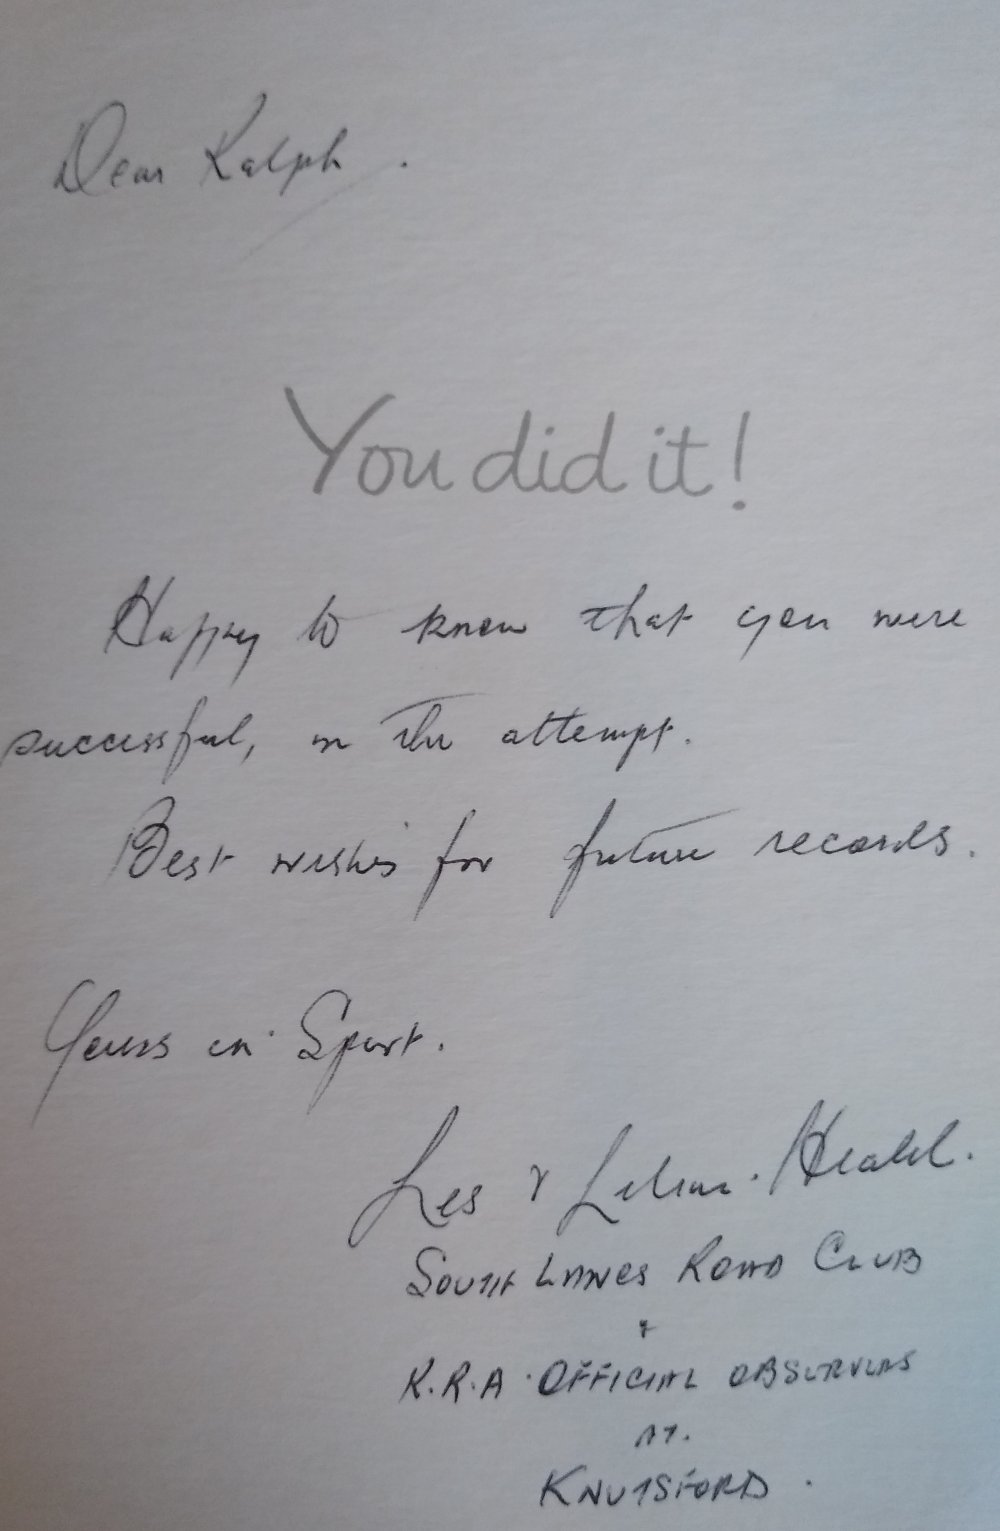 Dear Ralph.
You did it!
Happy to know that you were
successful, in the attempt.
Best wishes for future records.
Yours in Sport.
Les & Lilian.
SOUTH LANCS ROAD CLUB
&
R.R.A. OFFICIAL OBSERVERS
AT.
KNUTSFORD.